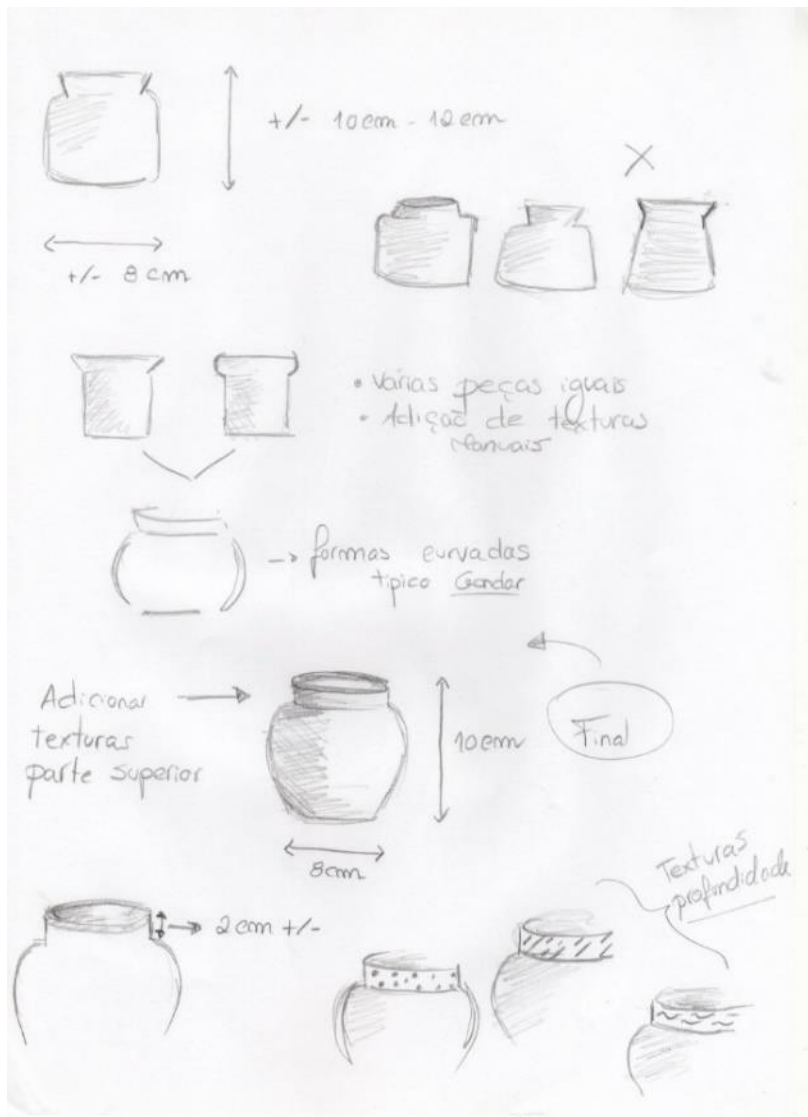 +/- 10cm - 12cm
X
+/- 8cm
• Várias peças iguais
• Adição de texturas
Manuais
-> formas curvadas
tipico Gondar
Adicionar
texturas
parte superior
10cm
Final
8cm
Texturas
profundidade
2cm +/-